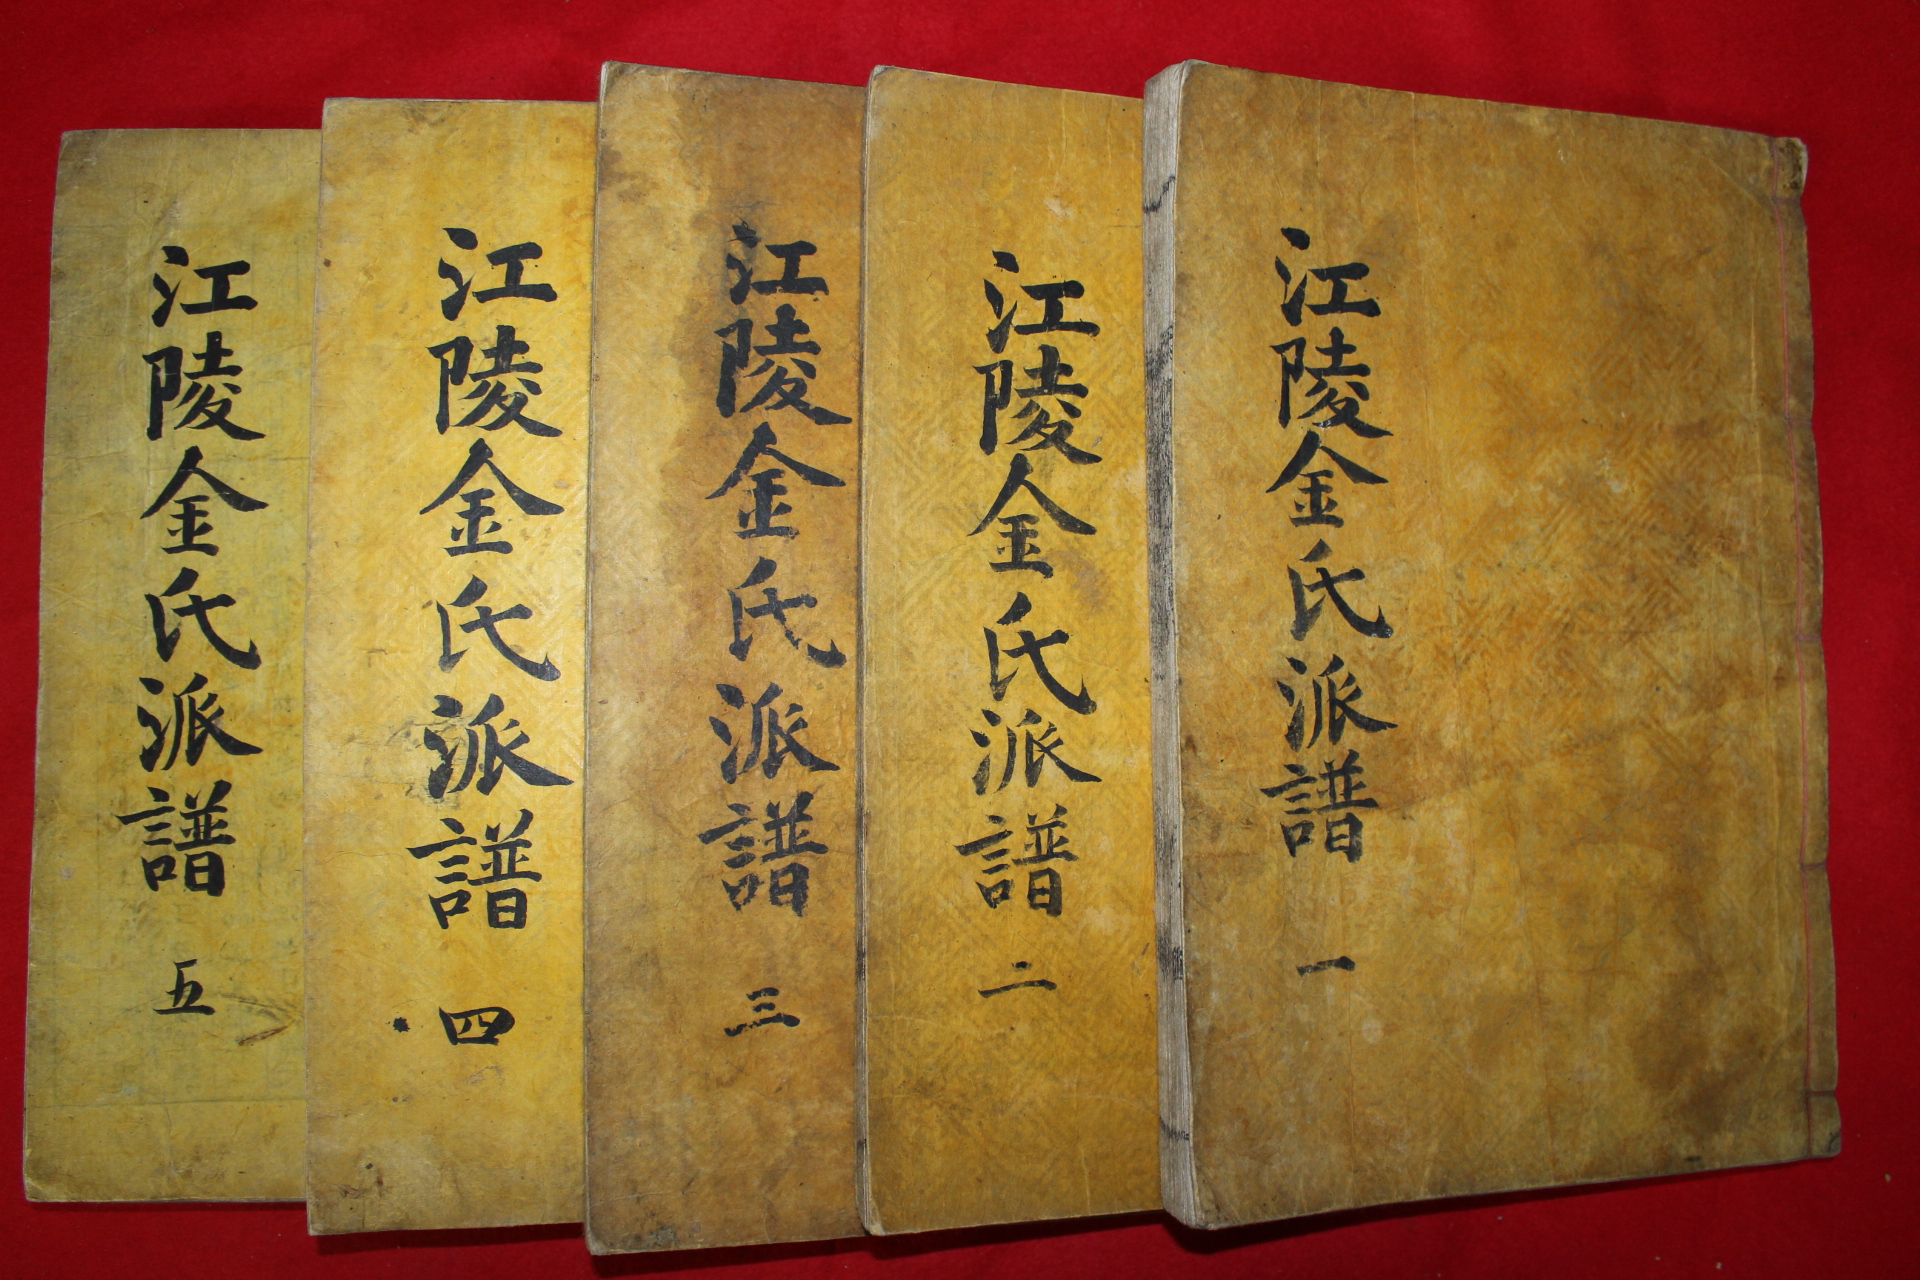 江陵金氏派譜 一
江陵金氏派譜 二
江陵金氏派譜 三
江陵金氏派譜 四
江陵金氏派譜 五